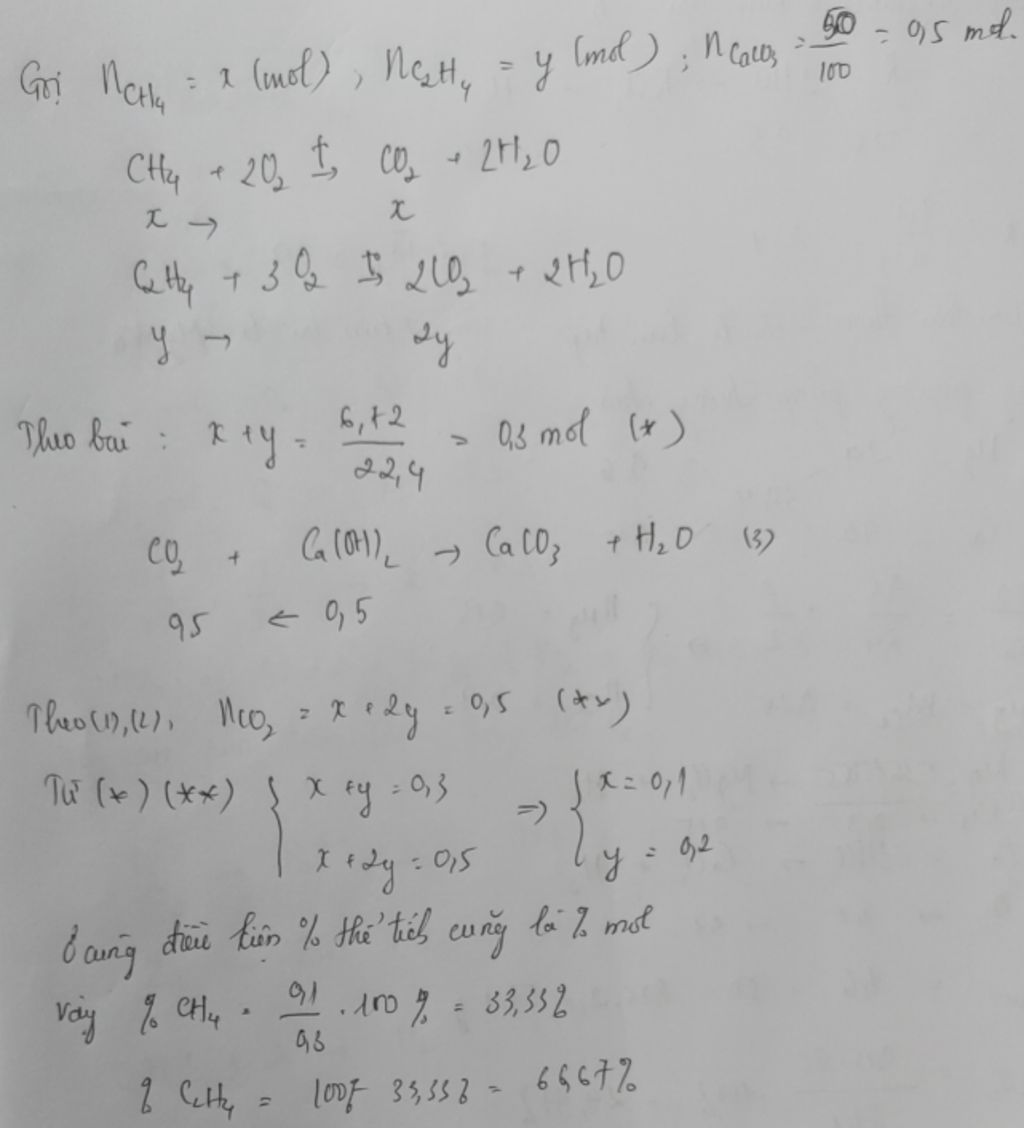 Gọi nCH₄ = x (mol), nC₂H₄ = y (mol); nCaCO₃ = 50/100 = 0,5 mol.
CH₄ + 2O₂ t→ CO₂ + 2H₂O
x → x
C₂H₄ + 3O₂ t→ 2CO₂ + 2H₂O
y → 2y
Theo bài : x + y = 6,72/22,4 = 0,3 mol (*)
CO₂ + Ca(OH)₂ → CaCO₃ + H₂O (3)
0,5 ← 0,5
Theo (1), (2), nCO₂ = x + 2y = 0,5 (**)
Từ (*) (**) { x + y = 0,3 => { x = 0,1
x + 2y = 0,5 y = 0,2
ở cùng điều kiện % thể tích cũng là % mol
vậy % CH₄ = 0,1/0,3 . 100 % = 33,33%
% C₂H₄ = 100% - 33,33% = 66,67%